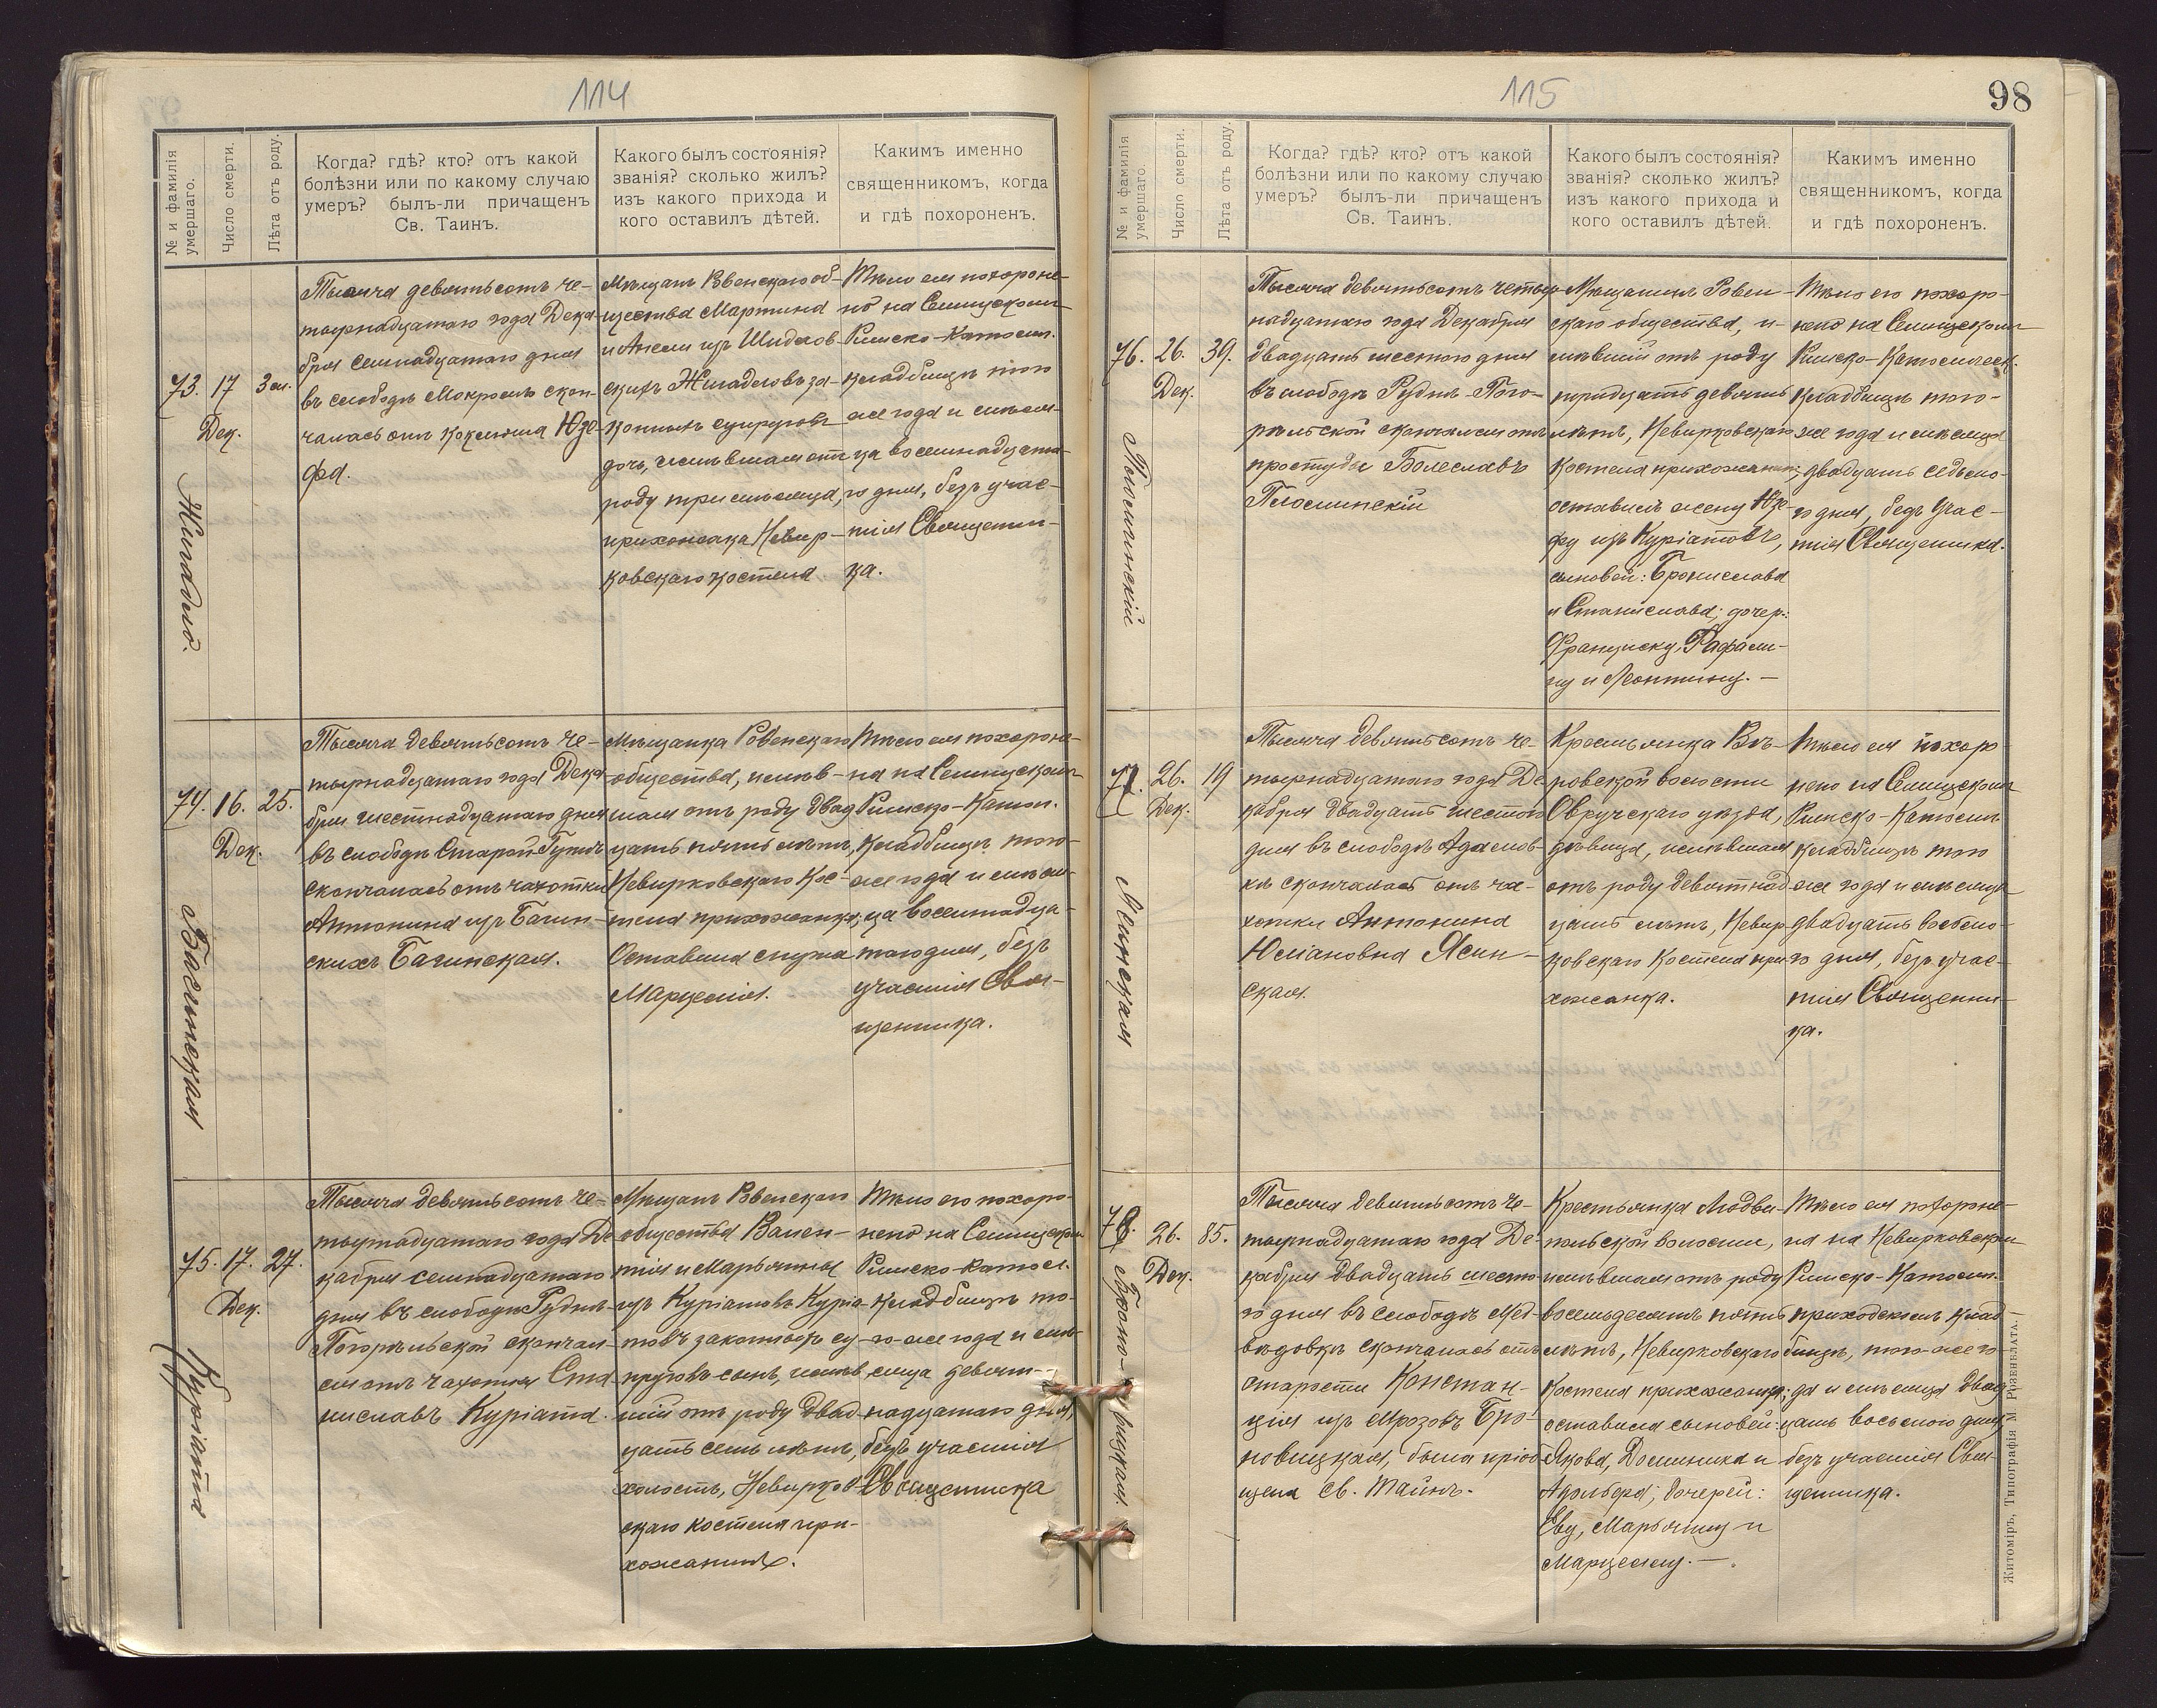 114
№ и фамилія
умершаго.
Число смерти.
Лѣта отъ роду.
Когда? гдѣ? кто? отъ какой
болѣзни или по какому случаю
умеръ? былъ-ли причащенъ
Св. Таинъ.
Какого былъ состоянія?
званія? сколько жилъ?
изъ какого прихода и
кого оставилъ дѣтей.
Какимъ именно
священникомъ, когда
и гдѣ похороненъ.
73. 17 Дек. 3 м.
Жигадло.
Тысяча девятьсотъ че-
тырнадцатаго года Дека-
бря семнадцатаго дня
въ слободѣ Мокромъ скон-
чалась отъ коклюша Юзе-
фа.
Мѣщанъ Ровенскаго об-
щества Мартина
и Анели изъ
скихъ Жигадловъ за-
конныхъ супруговъ
дочь, имѣвшая отъ
роду три мѣсяца,
прихожанка Невир-
ковскаго костела
Тѣло ея похороне-
но на Селищскомъ
Римско-Катол.
кладбищѣ того
же года и мѣся-
ца восемнадцата-
го дня, безъ учас-
тія Священни-
ка.
74. 16. Дек. 25.
Багинская
Тысяча девятьсотъ че-
тырнадцатаго года Дека-
бря шестнадцатаго дня
въ слободѣ Старой-Гутѣ
скончалась отъ чахотки
Антонина изъ Багин-
скихъ Багинская.
Мѣщанка Ровенскаго
общества, имѣв-
шая отъ роду двад-
цать пять лѣтъ,
Невирковскаго Кос-
тела прихожанка;
Оставила мужа
Марцелія.
Тѣло ея похороне-
на на Селищскомъ
Римско-Катол.
кладбищѣ того-
же года и мѣся-
ца восемнадца-
таго дня, безъ
участія Свя-
щенника.
75. 17. Дек. 27.
Куріата
Тысяча девятьсотъ че-
тырнадцатаго года Де-
кабря семнадцатаго
дня въ слободѣ Руднѣ-
Погорѣльской скончал-
ся отъ чахотки Ста-
ниславъ Куріата.
Мѣщанъ Ровенскаго
общества Вален-
тія и Марьянны
изъ Куріатовъ Куріа-
товъ законныхъ су-
пруговъ сынъ, имѣв-
шій отъ роду двад-
цать семь лѣтъ,
холостъ, Невирков-
скаго костела при-
хожанинъ.
Тѣло его похоро-
нено на Селищском
Римско-катол.
кладбищѣ то-
го-же года и мѣ-
сяца девят-
надцатаго дня,
безъ участія
Священника
115
98
№ и фамилія
умершаго.
Число смерти.
Лѣта отъ роду.
Когда? гдѣ? кто? отъ какой
болѣзни или по какому случаю
умеръ? былъ-ли причащенъ
Св. Таинъ.
Какого былъ состоянія?
званія? сколько жилъ?
изъ какого прихода и
кого оставилъ дѣтей.
Какимъ именно
священникомъ, когда
и гдѣ похороненъ.
76. 26. Дек. 39.
Плосминскій
Тысяча девятьсотъ четыр-
надцатаго года Декабря
двадцать шестого дня
въ слободѣ Руднѣ-Пого-
рѣльской скончался отъ
простуды Болеславъ
Плосминскій
Мѣщанинъ Ровен-
скаго общества, и-
мѣвшій отъ роду
тридцать девять
лѣтъ, Невирковскаго
костела прихожанин;
оставилъ жену Юзе-
фу изъ Куріатовъ,
сыновей: Бронислава
и Станислава; дочер.:
Франциску, Рафали-
ну и Леонтину. —
Тѣло его похоро-
нено на Селищском
Римско-Католическ.
Кладбищѣ того-
же года и мѣсяца
двадцать седьмо-
го дня, безъ учас-
тія Священника.
77. 26. Дек. 19
Тысяча девятьсотъ че-
тырнадцатаго года Де-
кабря двадцать шестого
дня въ слободѣ Адамов-
кѣ скончалась отъ ча-
хотки Антонина
Юліановна Ясин-
ская.
Крестьянка Въ-
ровской волости
Овручскаго уѣзда,
дѣвица, имѣвшая
отъ роду девятнад-
цать лѣтъ, Невир-
ковскаго Костела при-
хожанка.
Тѣло ея похор
нено на Селищском
Римско-Католи
кладбищѣ того
же года и мѣсяца
двадцать восьмо-
го дня, безъ учас-
тія Священни-
ка.
78. 26. Дек. 85.
Броновицкая.
Тысяча девятьсотъ че-
тырнадцатаго года Де-
кабря двадцать шесто-
го дня въ слободѣ Мед-
вѣдовкѣ скончалась отъ
старости Констан-
ція изъ Мрозовъ Бро-
новицкая, была пріоб-
щена св. Тайнъ.
Крестьянка Людви-
польской волости,
имѣвшая отъ роду
восемьдесятъ пять
лѣтъ, Невирковскаго
Костела прихожанка;
оставила сыновей:
Якова, Доминика и
Адольфа; дочерей:
Еву, Марьянну и
Марцелу. —.
Тѣло ея похороне-
на на Невирковском
Римско-Католи.
приходскомъ клад-
бищѣ, того-же го-
да и мѣсяца двад-
цать восьмого дня
безъ участія Свя-
щенника.
Житоміръ, Типографія М. Розенблата.